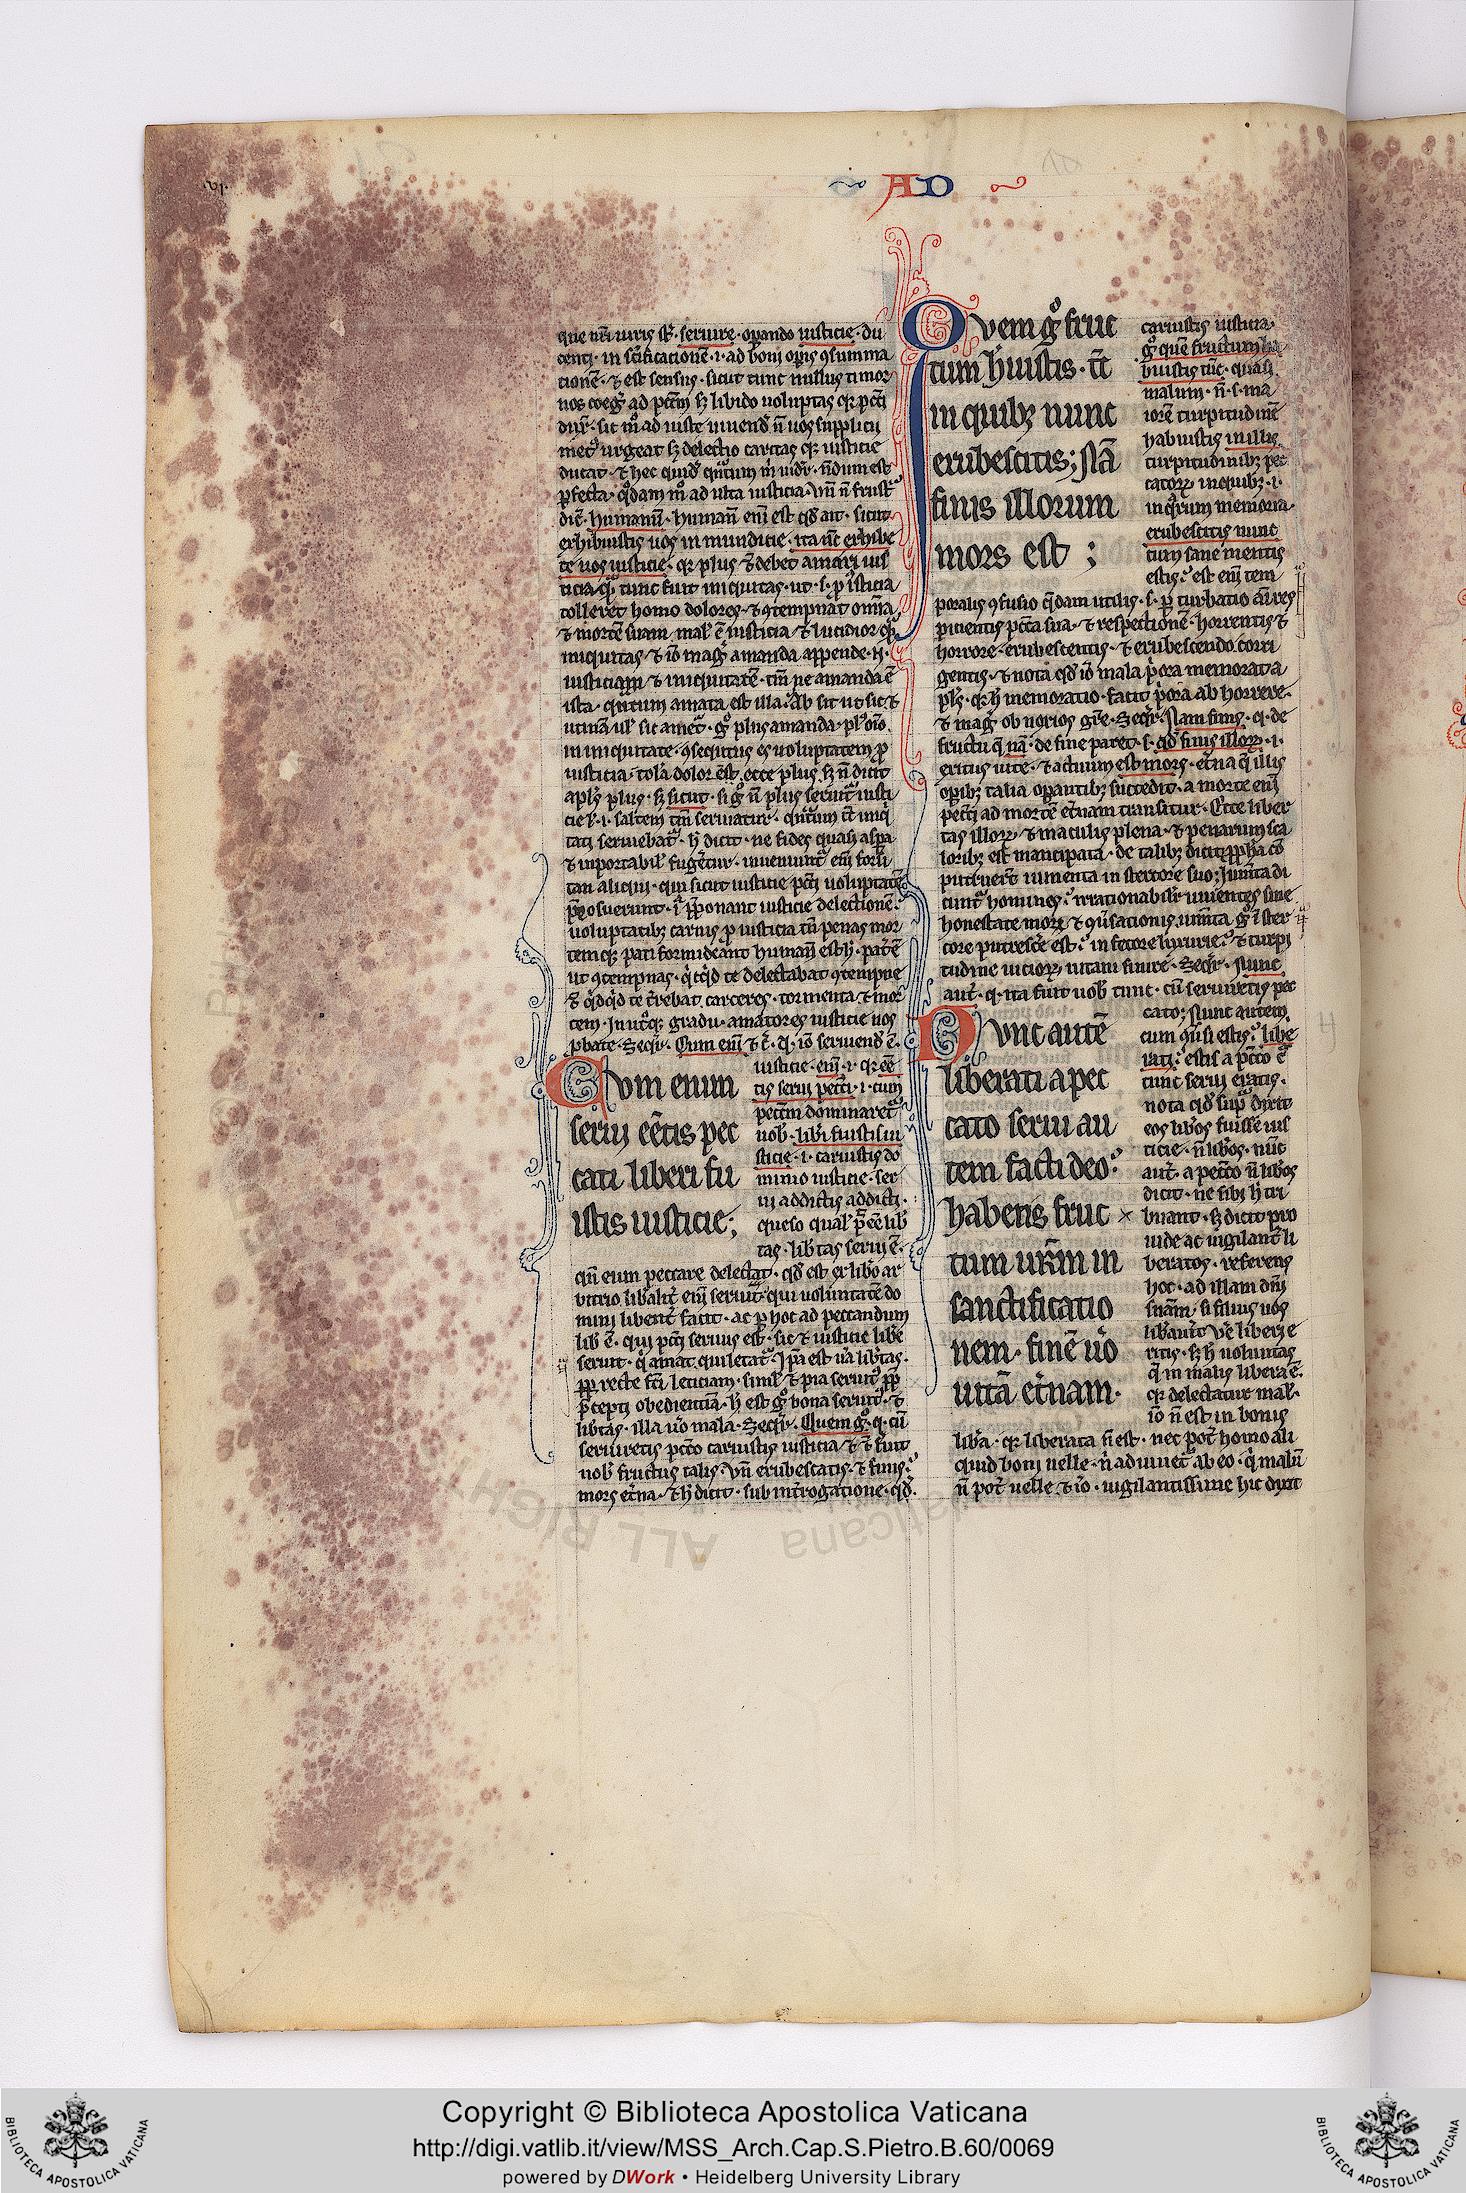 .vi.
AD
que nr̄i iuris st̄· seruire · oꝑando iusticie · du
centi · in sc̄ificationē · i · ad boni oꝑis ꝯsumma
tionē · ⁊ est sensus · sicut tunc nullus timor
uos coegͭ ad pctm̄ sꝫ libido uoluptas qꝫ pcti
sic mº ad iuste uiuendͫ n̄ uos supplicii
metꝰ urgeat sꝫ delectio caritas qꝫ iusticie
ducat · ⁊ hec quidē
ꝑfecta · qͦdam mº ad ulta iusticia · vn̄ n̄ frustͣ
dic̄ · humanū · humanū eni᷒ est qd̄ ait · sicut
exhibuistis uos inmundicie · ita nc̄ exhibe
te uos iusticie · qꝫ plus
ticia qͣ tunc fuit iniquitas · ut · s · ꝓ iusticia
tolleret homo dolores · ⁊ ꝯtempnat omīa
⁊ mortē suam
iniquitas · ⁊ iō magͥ amanda appende · ḡ ·
iusticiam ⁊ iniquitatē · tm̄ ne amanda ē
ista · qn̄tum amata est illa · Ab sit ut sic · ⁊
utinā ul̓ sic amet᷒ · gͦ plus amanda
in iniquitate · ꝯsequtus es uoluptatem ꝓ
iusticia · tol̓a dolorēs · ecce plus · sꝫ n̄ dicit
apl̓s plus · sꝫ sicut · si gͦ n̄ plus seruit᷒ iusti
cie · saltem tm̄ seruiatur · qn̄tum tc̄ iniqͥ
tati seruiebat᷒ · h̄ dicit · ne fides quasi asꝑa
⁊ inportabil̓ fugeretur · inueniunt᷒ eni᷒ forsi
tan aliqui · qui sicut iusticie pcti uoluptatē
p̄posuerunt · ī p̄ponant iusticie delectionē ·
uoluptatibꝫ carnis ꝓ iusticia tn̄ penas mor
temqꝫ pati formidant
ut ꝯtempnas · qͥcqͥd te delectabat ꝯtempne
⁊ qͥdqͥd te t̄rebat carceres · tormenta ⁊ mor
tem · In utͦqꝫ gradu · amatores iusticie uos
ꝓbate · Seqͥr · Cum eni᷒ ⁊ c̄ · qͣ iō seruiendͫ ē
Cvm enim
serui eētis pec
cati liberi fu
istis iusticie;
iusticie · eni᷒ · i · qꝫ eē
tis serui pecc̄i · i · cum
pecc̄m dominaret᷒
uob̓ · lib̓i fuistis iu
sticie · i · caruistis do
minio iusticie · ser
ui addictis addicti ·
queso qual̓ p̄ eē lib̓
tas · lib̓tas serui ē ·
qn̄ eum peccare delectat · qd̄ est ex lib̓o ar
bitrio lib̓alit̓ eni᷒ seruit qui uoluntatē do
mini libent̓ facit · ac ꝑ hoc ad peccandum
lib̓ ē · qui pcti seruus est · sic ⁊ iusticie lib̓e
seruit · qͥ amat
recte fc̄i leticiam · simul̓ ⁊ pia seruitꝰ ꝓꝑ
p̄cepti obedientiā · h̄ est gͦ bona seruitꝰ · ⁊
lib̓tas · illa uͦo mala · Seqͥr · Quem gͦ · q · cū
seruiretis pcc̄o caruistis iusticia ⁊ tc̄ fuit
uob̓ fructus talis · vn̄ erubescatis · ⁊ finis ·
mors et̓na · ⁊ h̄ dicit · sub int̓rogatione · qd̄ ·
Qvem gͦ fruc
tum h̄uistis · tc̄
in quibꝫ nunc
erubescitis; Nā
finis illorum
mors est ;
caruistis iusticia ·
gͦ quē fructum ha
buistis tūc · quasi
malum · n̄ · s · ma
iorē turpitudinē
habuistis in illis
turpitudinibꝫ pec
catoꝝ in quibꝫ · i ·
in qͦrum memoria
erubescitis nunc
cum sane mentis
estis · est eni᷒ tem
poralis ꝯfusio qͥdam utilis · s · ꝑturbatio
picientis pctā sua · ⁊ respectionē · horrentis ⁊
horrore · erubescentis · ⁊ erubescendo corri
gentis · ⁊ nota qd̄ iō mala p̓ora memorat
apl̓s · qꝫ h̄ memoratio · facit p̓ora ab horrere ·
⁊ magͥ ob noxios grē · Seqͥr · Nam finis · q · de
fructu · de fine paret · s · qd̄ finis illoꝝ · i ·
exitus uite · ⁊ actuum est mors · et̓na qͣ illis
oꝑibꝫ talia oꝑantibꝫ succedit · a morte eni᷒
pecc̄i ad mortē et̓nam transitur · Ecce liber
tas illoꝝ · ⁊ maculis plena · ⁊ penarum sca
loribꝫ est mancipata · de talibꝫ dicit ꝓph̓a cō
putruer̄t iumenta in stercore suo; Iumēta di
cunt᷒ homines · irrationabilit̓ uiuentes sine
honestate moꝝ ⁊ ꝯu̓sationis
core putresce̓ est · in fetore luxurie · ⁊ turpi
tudine uicioꝝ · uitam finire · Seqͥr · Nunc
aut̄ · q · ita fuit uob̓ tunc · cū seruiretis pec
Nvnc autē
liberati a pec
cato serui au
tem facti deo ·
habetis fruc
tum ur̄m in
sanctificatio
nem · finē uͦo
uitā et̓nam ·
cato; Nunc autem
cum qͣsi estis · libe
rati · estis a pcc̄o ē
tunc serui eratis ·
nota qd̄ supͣ dixit
eos lib̓os fuisse ius
ticie · n̄ lib̓os · nūc
aut̄ · a pecc̄o n̄ lib̓os
dicit · ne sibi h̄ tri
buant · sꝫ dicit pro
uide ac uigilant̓ li
beratos · referens
hoc · ad illam dn̄i
sn̄iam · si filius uos
lib̓auit ue̓ liberi e
ritis · sꝫ h̄ uoluntas
qͣ in malis libera ē
qꝫ delectatur mal̓ ·
iō n̄ est in bonis
lib̓a · qꝫ liberata n̄ est · nec pot̄ homo ali
quid boni uelle · n̄ adiuuet᷒ ab eo · qͥ malū
n̄ pot̄ uelle · ⁊ iō · uigilantissime hic dixit
Copyright © Biblioteca Apostolica Vaticana
http://digi.vatlib.it/view/MSS_Arch.Cap.S.Pietro.B.60/0069
powered by DWork • Heidelberg University Library
BIBLIOTECA APOSTOLICA VATICANA
BIBLIOTECA APOSTOLICA VATICANA